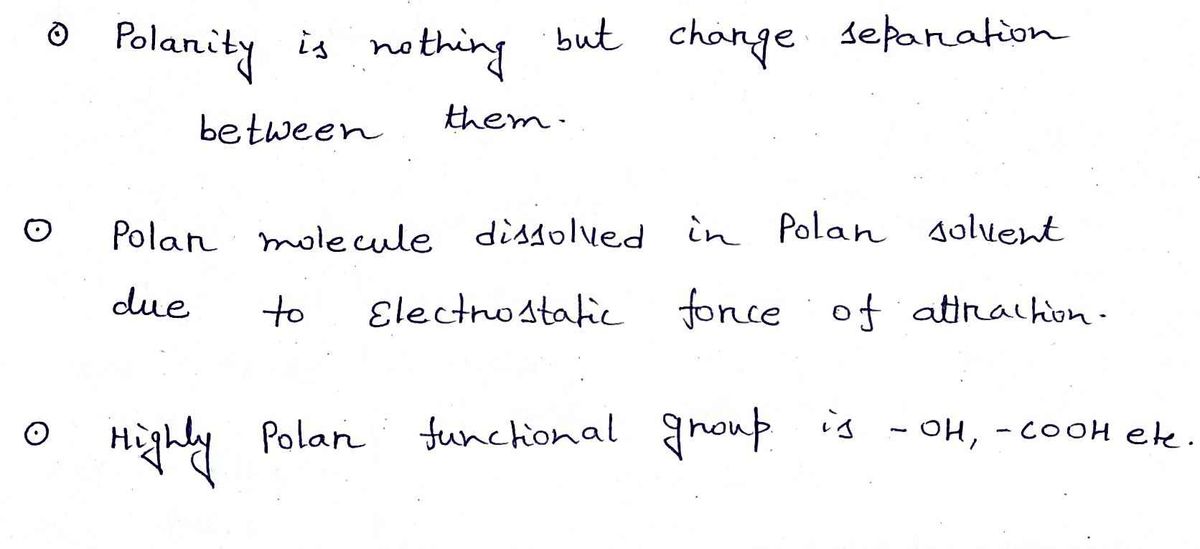 ⊙ Polarity is nothing but charge separation
between them.
⊙ Polar molecule dissolved in Polar solvent
due to Electrostatic force of attraction.
⊙ Highly Polar functional group is -OH, -COOH etc.